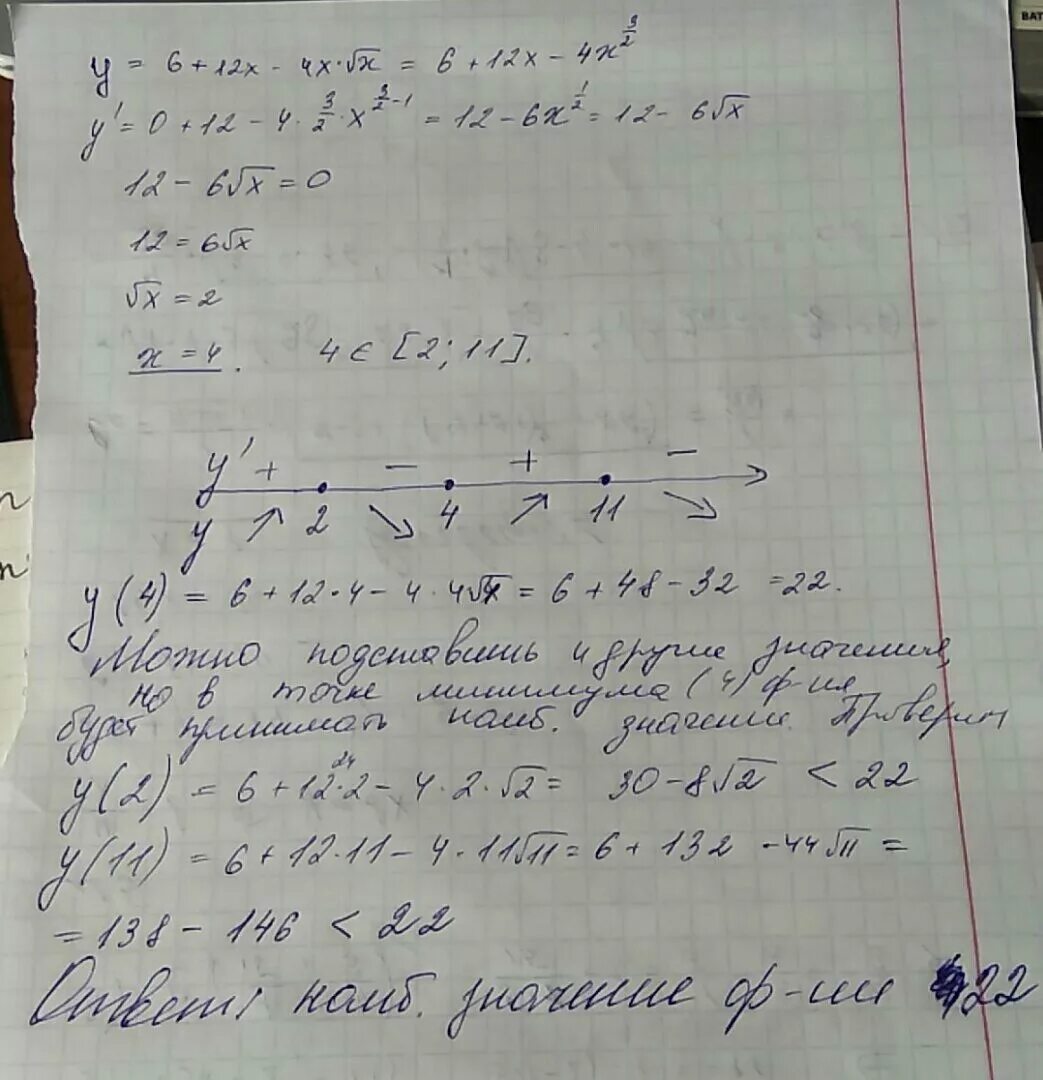 y = 6 + 12x - 4x·√x = 6 + 12x - 4x^(3/2)
y' = 0 + 12 - 4 · 3/2 · x^(3/2 - 1) = 12 - 6x^(1/2) = 12 - 6√x
12 - 6√x = 0
12 = 6√x
√x = 2
x = 4. 4 ∈ [2; 11].
y' + - + -
y ↗ 2 ↘ 4 ↗ 11 ↘
y(4) = 6 + 12·4 - 4·4√4 = 6 + 48 - 32 = 22.
Можно подставить и другие значения,
но в точке минимума (4) ф-ия
будет принимать наиб. значение. Проверим
24
y(2) = 6 + 12·2 - 4·2·√2 = 30 - 8√2 < 22
y(11) = 6 + 12·11 - 4·11√11 = 6 + 132 - 44√11 =
= 138 - 146 < 22
Ответ: наиб. значение ф-ии 22
BAT